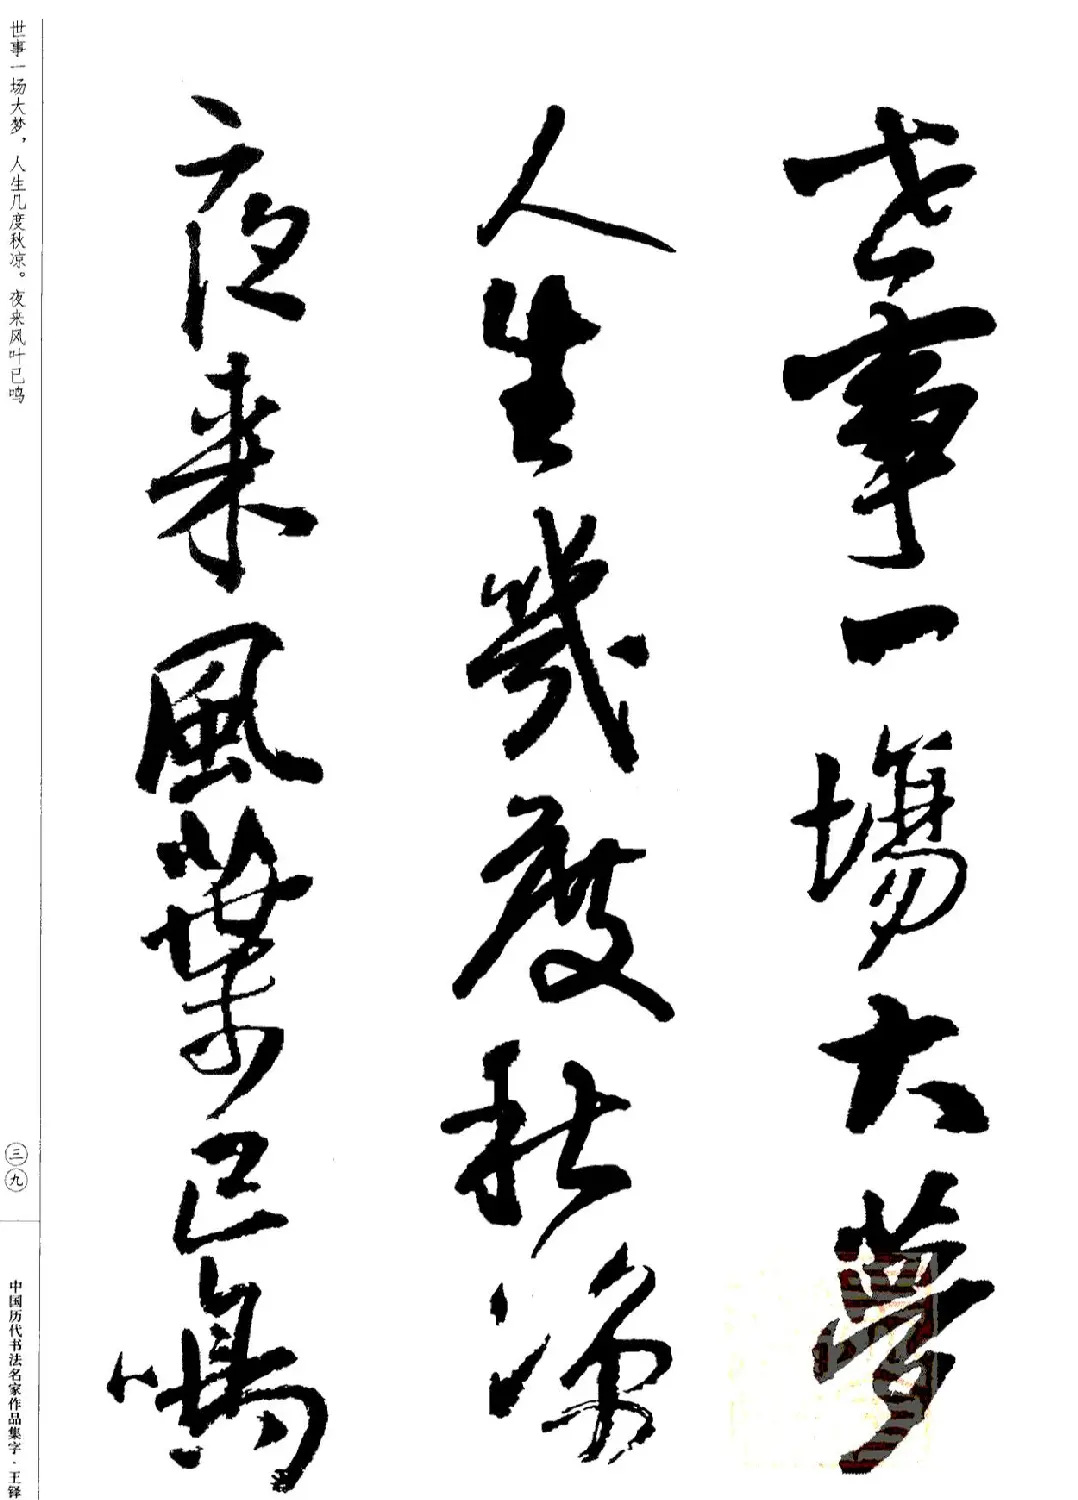 世事一場大夢
人生幾度秋涼
夜来風葉已鳴
世事一场大梦，人生几度秋凉。夜来风叶已鸣
三九
中国历代书法名家作品集字·王铎